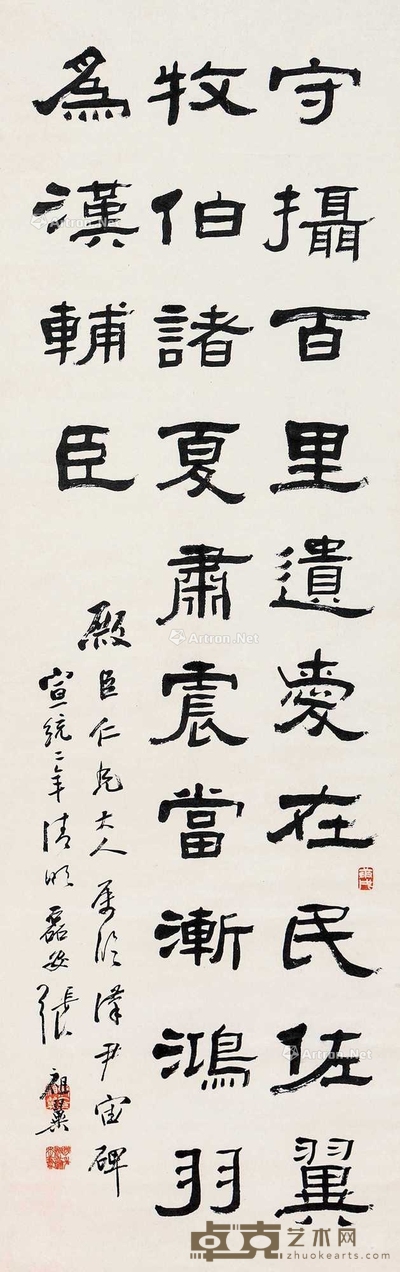 守攝百里遺愛在民佐翼
牧伯諸夏肅震當漸鴻羽
為漢輔臣
殿臣仁兄大人属臨漢尹宙碑
宣統二年清明磊盦張祖翼
Artron.Net
卓克艺术网
zhuokearts.com